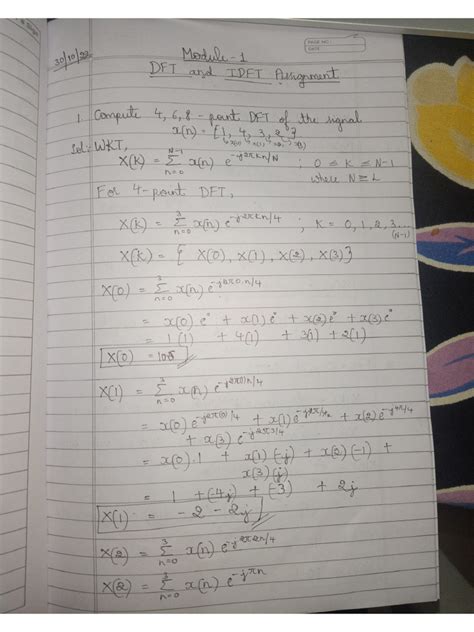 PAGE NO:
DATE:
30/10/22
Module-1
DFT and IDFT Assignment
1. Compute 4, 6, 8 - point DFT of the signal
x(n) = {1, 4, 3, 2}
x(0) x(1) x(2) x(3)
Sol: WKT,
X(k) = N-1 Σ n=0 x(n) e^-j2πkn/N ; 0 ≤ K ≤ N-1
where N ≥ L
For 4-point DFT,
X(k) = 3 Σ n=0 x(n) e^-j2πkn/4 ; K = 0, 1, 2, 3...
(N-1)
X(k) = { X(0), X(1), X(2), X(3)}
X(0) = 3 Σ n=0 x(n) e^-j2π0.n/4
= x(0) e° + x(1) e° + x(2) e° + x(3) e°
= 1(1) + 4(1) + 3(1) + 2(1)
X(0) = 10
X(1) = 3 Σ n=0 x(n) e^-j2π(1)n/4
= x(0) e^-j2π(0)/4 + x(1) e^-j2π/4 + x(2) e^-j4π/4
+ x(3) e^-j2π3/4
= x(0).1 + x(1)(-j) + x(2)(-1) +
x(3)(j)
= 1 + (-4j) + (-3) + 2j
X(1) = -2 - 2j
X(2) = 3 Σ n=0 x(n) e^-j2π2n/4
X(2) = 3 Σ n=0 x(n) e^-jπn